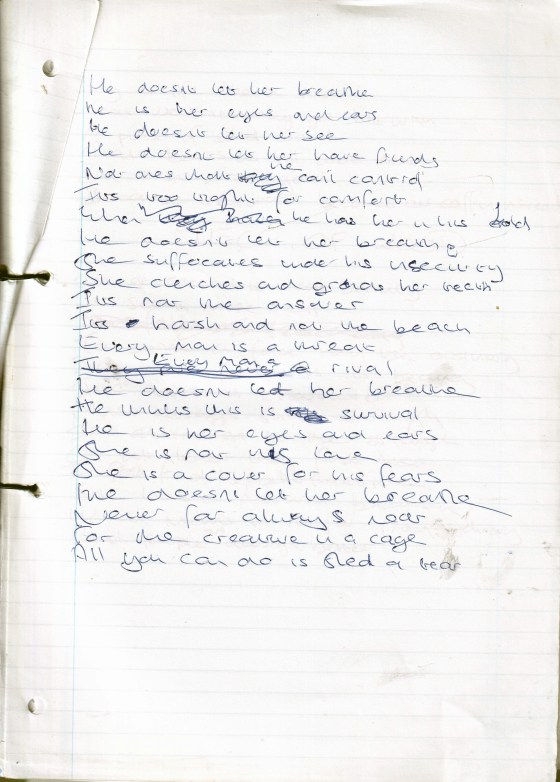 He doesnt let her breathe
he is her eyes and ears
He doesnt let her see
He doesnt let her have friends
Not ones that he cant control
Its too tight for comfort
When he has her in his hold
He doesnt let her breathe
She suffocates under his insecurity
She clenches and grinds her teeth
Its not the answer
Its harsh and not the beach
Every man is a threat
Every man a rival
He doesnt let her breathe
He thinks this is survival
He is her eyes and ears
She is not his love
She is a cover for his fears
He doesnt let her breathe
Never for always near
For the creature in a cage
All you can do is shed a tear